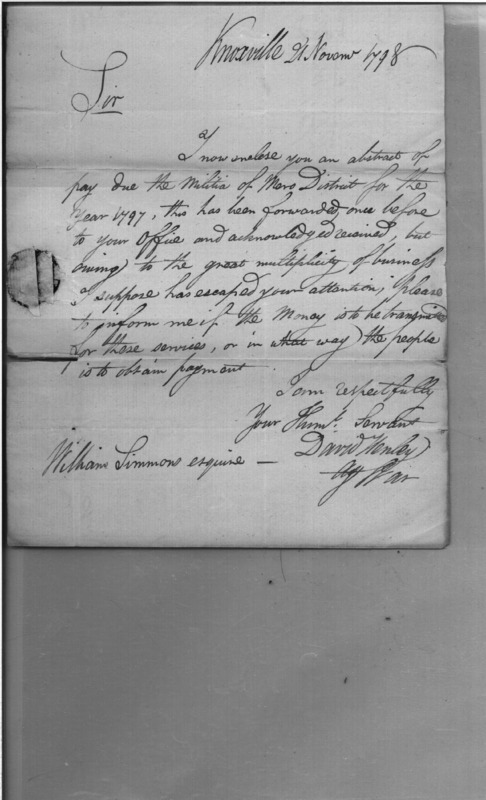 Knoxville 21 Novemr 1798
Sir
I now enclose you an abstract of
pay due the Militia of Mero District for the
Year 1797, this has been forwarded once before
to your Office and acknowledged received, but
owing to the great multiplicity of business
I suppose has escaped your attention; please
to inform me if the Money is to be transmitted
for those services, or in what way the people
is to obtain payment
I am respectfully
Your Humb. Servant
David Henley
Agt War
William Simmons esquire —